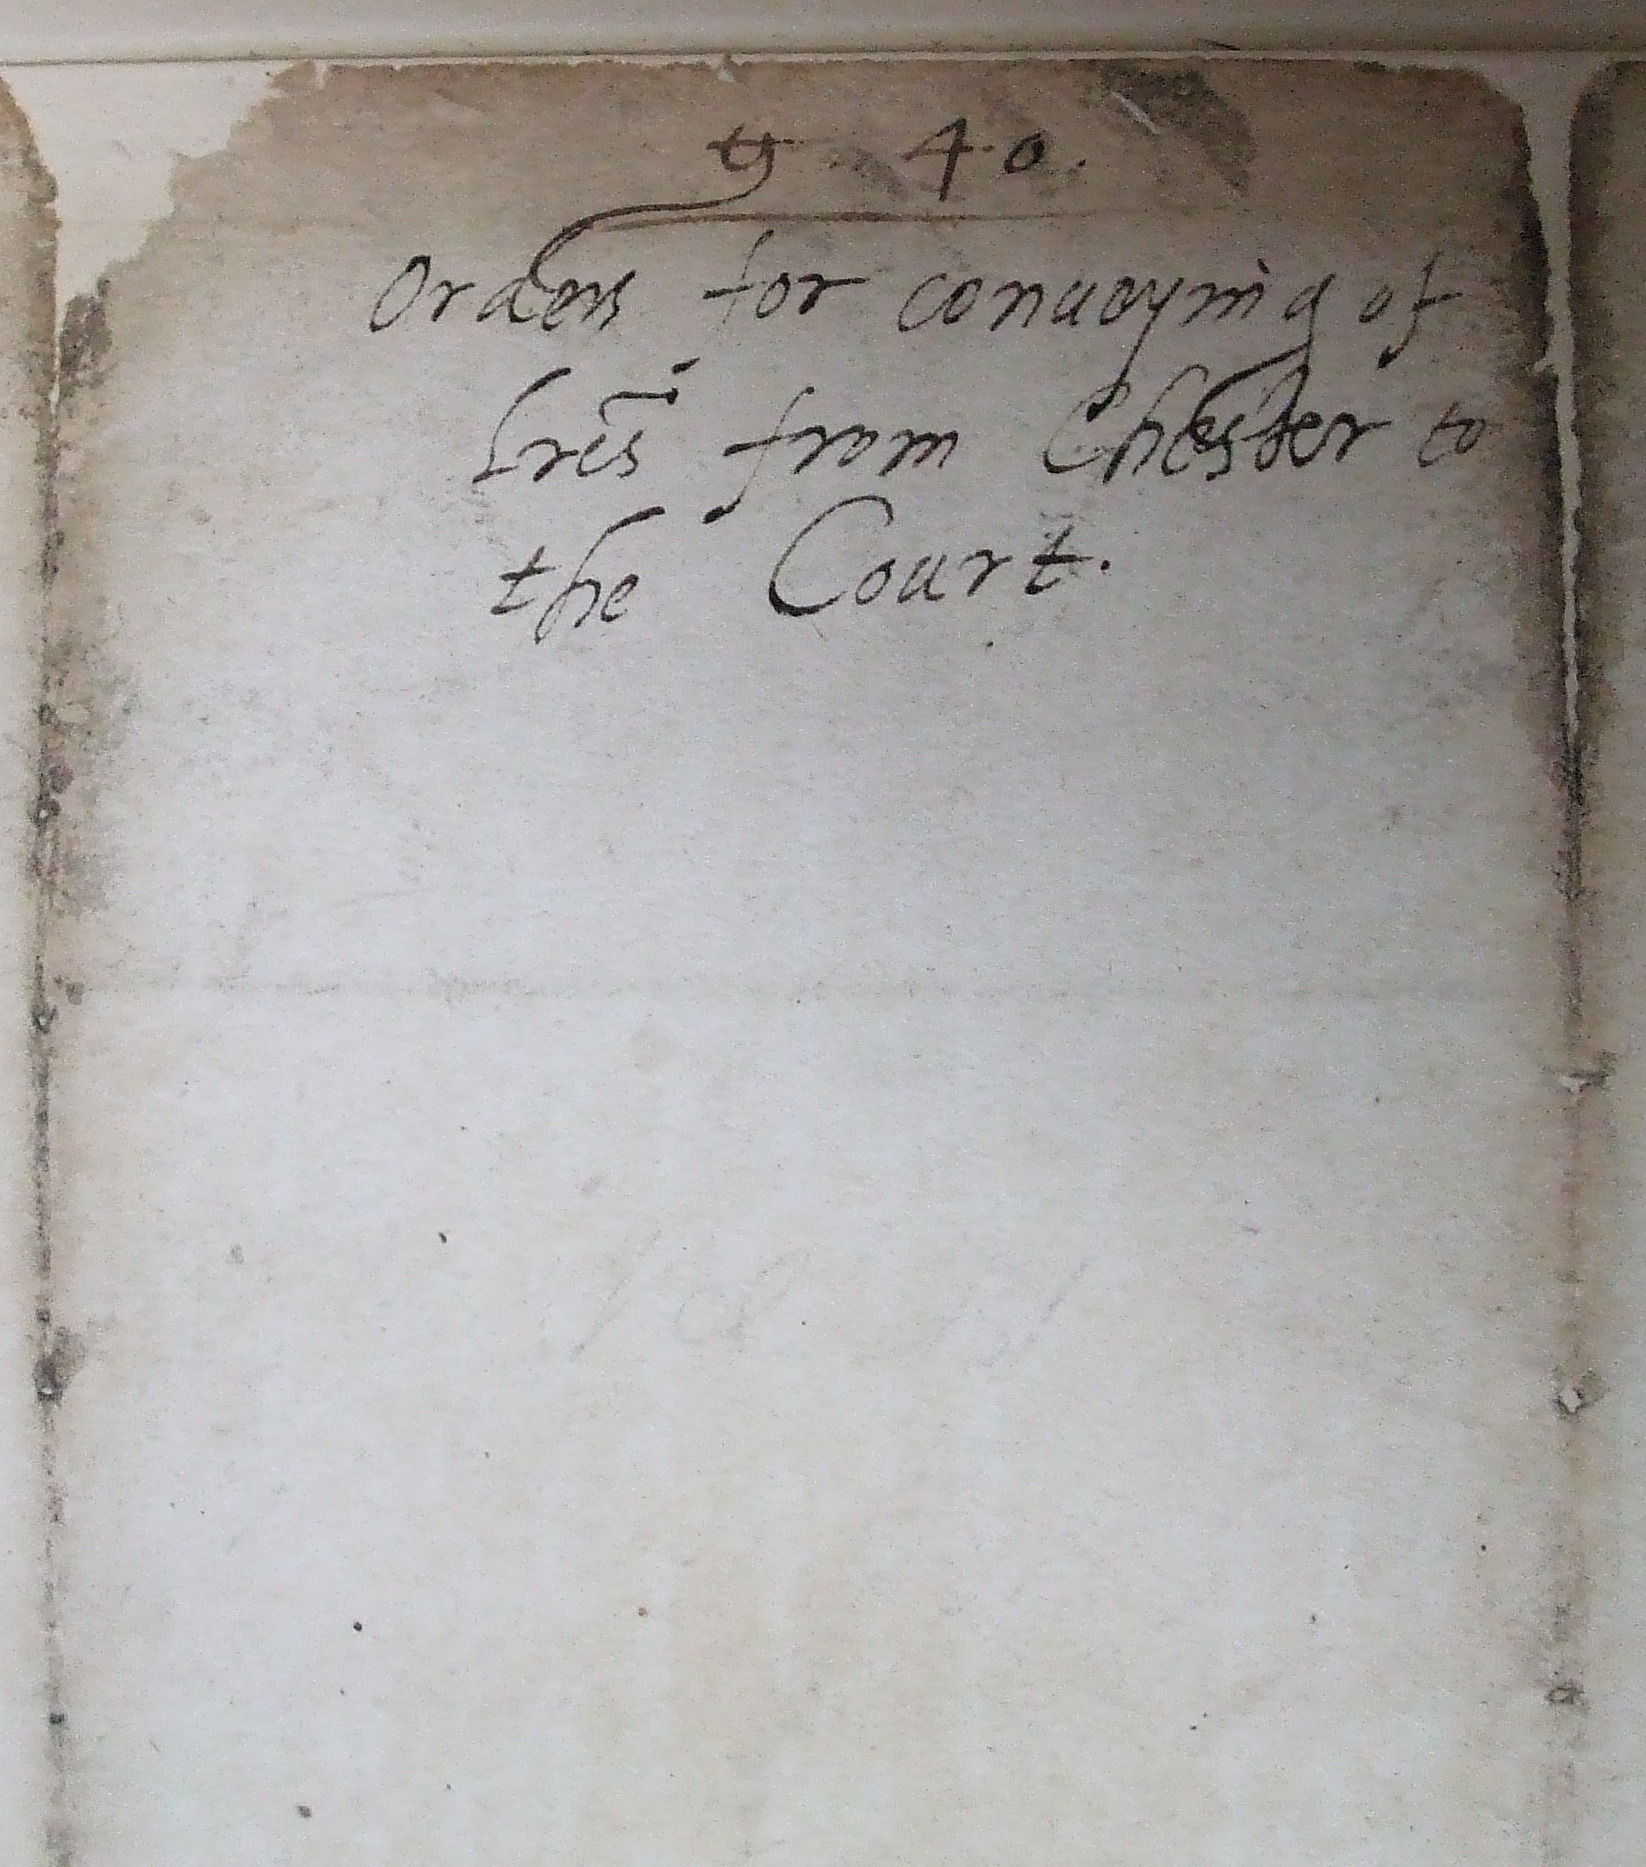 40.
Orders for conueying of
Lrēs from Chester to
the Court.